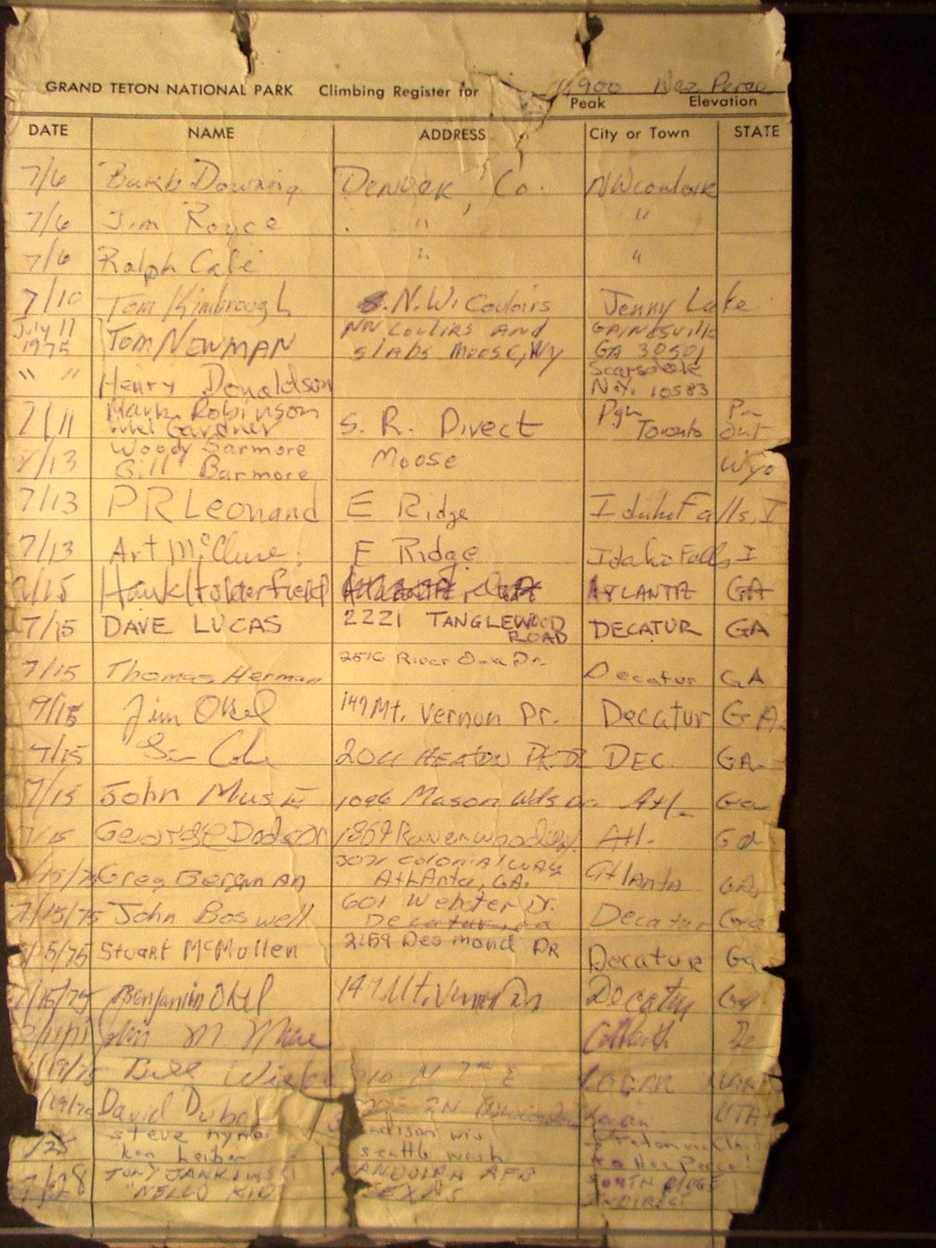 GRAND TETON NATIONAL PARK Climbing Register for 11900 Nez Perce
Peak Elevation
DATE NAME ADDRESS City or Town STATE
7/6 Downing Denver, Co. NW couloir
7/6 Jim Royce " "
7/6 Ralph " "
7/10 Tom Kimbrough N.W. Couloirs Jenny Lake
July 11 1975 Tom NEWMAN NW Couloirs AND slabs Moose, Wy GAINESVILLE GA 30501
" " Henry Donaldson Scarsdale N.Y. 10583
7/11 Mark Robinson Gardner S. R. Direct Pgh Pa Toronto Ont
7/13 Woody Barmore Bill Barmore Moose Wyo
7/13 PR Leonard E Ridge Idaho Falls, I
7/13 Art McClure E Ridge Idaho Falls, I
7/15 ATLANTA GA
7/15 DAVE LUCAS 2221 TANGLEWOOD ROAD DECATUR GA
7/15 Thomas Herman 2516 River Oak Dr. Decatur GA
7/15 Jim Okel 147 Mt. Vernon Dr. Decatur GA
7/15 HEATON PK DR DEC. GA.
7/15 John Muse III 1096 Mason Atl. Ga
7/15 George Dodson 1869 Atl. Ga
Greg Bergman 3071 Colonial Way Atlanta, GA. Atlanta GA.
7/15/75 John Boswell 601 Webster Dr. Decatur Ga
7/15/75 Stuart McMullen 2159 Desmond DR Decatur Ga
7/15/75 Benjamin Okel 147 Mt. Vernon Dr Decatur Ga
M
Bill N 7th E LOGAN UTAH
David Logan UTAH
steve
ken seattle wash to Nez Perce!
7/28 TONY "NELLO KID" AFB TEXAS SOUTH RIDGE